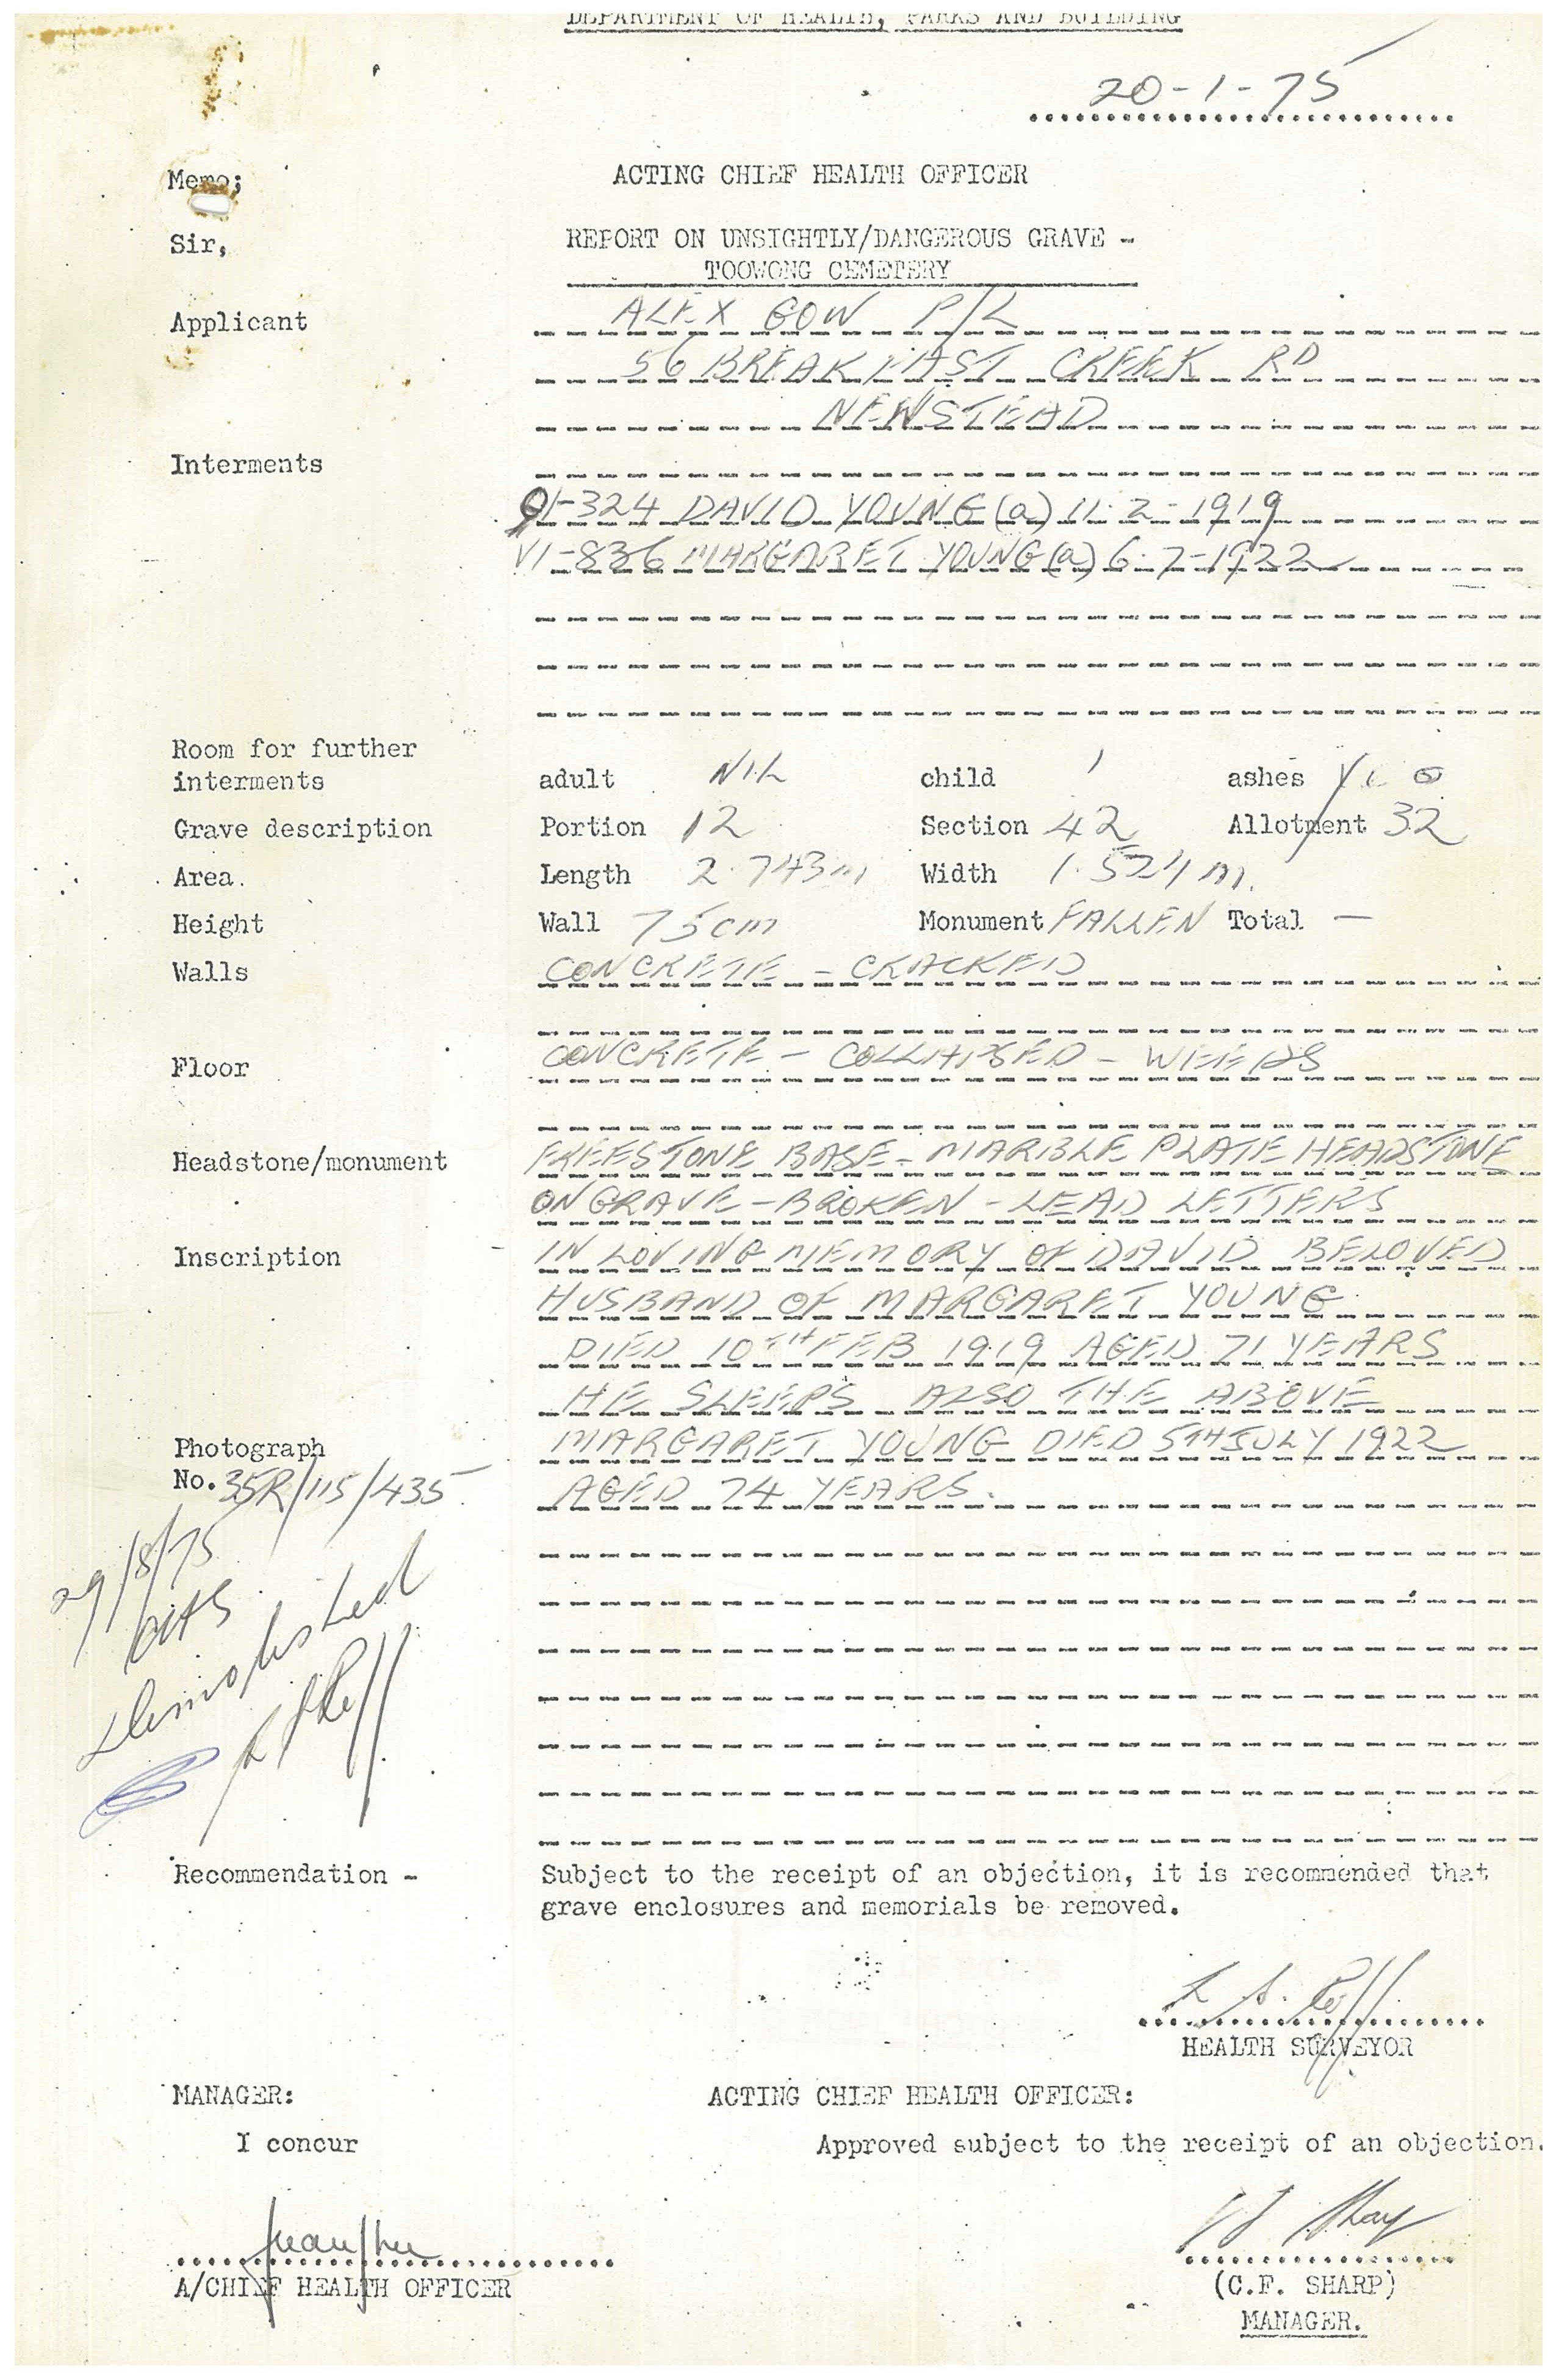 DEPARTMENT OF HEALTH, PARKS AND BUILDING
20-1-75
Memo;
ACTING CHIEF HEALTH OFFICER
Sir,
REPORT ON UNSIGHTLY/DANGEROUS GRAVE -
TOOWONG CEMETERY
Applicant ALEX GOW P/L
56 BREAKFAST CREEK RD
NEWSTEAD
Interments
91-324 DAVID YOUNG (a) 11-2-1919
VI-836 MARGARET YOUNG (a) 6-7-1922
Room for further
interments adult NIL child 1 ashes YES
Grave description Portion 12 Section 42 Allotment 32
Area. Length 2.743m Width 1.524m.
Height Wall 75cm Monument FALLEN Total —
Walls CONCRETE - CRACKED
Floor CONCRETE - COLLAPSED - WEEDS
Headstone/monument FREESTONE BASE - MARBLE PLATE HEADSTONE
ON GRAVE - BROKEN - LEAD LETTERS
Inscription IN LOVING MEMORY OF DAVID BELOVED
HUSBAND OF MARGARET YOUNG
DIED 10TH FEB 1919 AGED 71 YEARS
HE SLEEPS ALSO THE ABOVE
Photograph MARGARET YOUNG DIED 5TH JULY 1922
No. 35R/115/435 AGED 74 YEARS.
29/8/75
demolished
Recommendation - Subject to the receipt of an objection, it is recommended that
grave enclosures and memorials be removed.
HEALTH SURVEYOR
MANAGER: ACTING CHIEF HEALTH OFFICER:
I concur Approved subject to the receipt of an objection.
A/CHIEF HEALTH OFFICER (C.F. SHARP)
MANAGER.